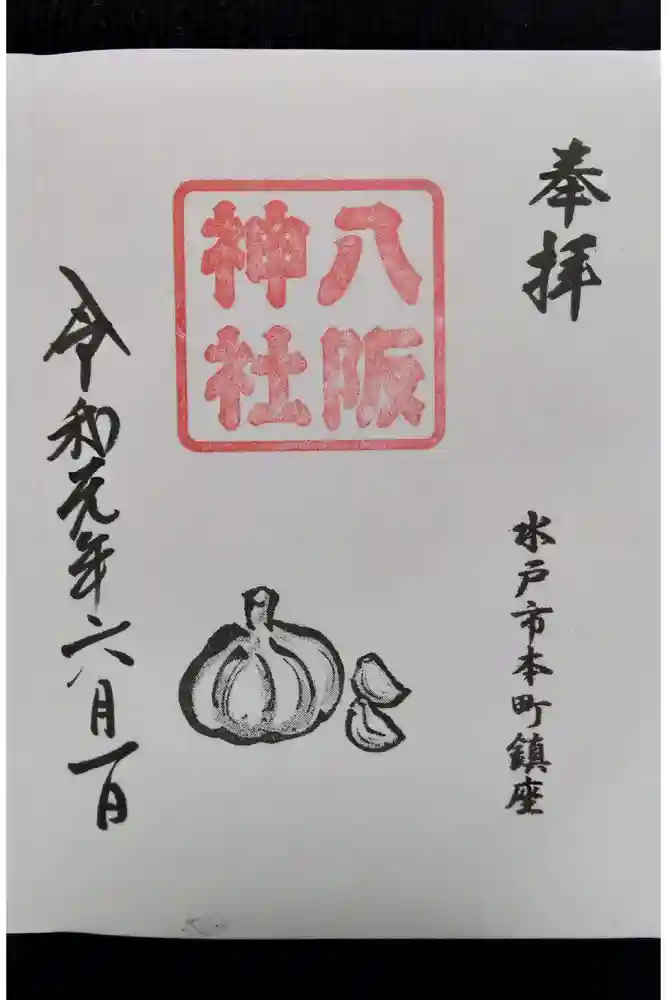 奉拝
八阪
神社
水戸市本町鎮座
令和元年六月一日